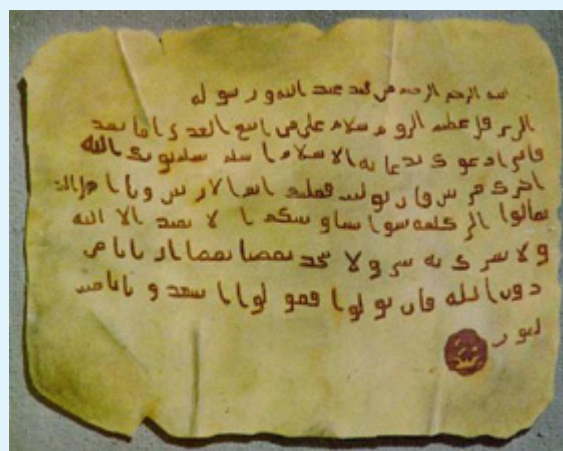 من محمد عبد الله و رسو له
الى هرقل عظيم الروم سلام على من اتبع الهدى اما بعد
فانى ادعوك بدعاية الاسلام اسلم تسلم يوتك الله
اجرك مرتين فان توليت فعليك اثم الاريسين ويا اهل
تعالوا الى كلمة سوا بيننا وبينكم ا لا نعبد الا الله
ولا نشرك به ولا يتخد بعضنا بعضا اربابا من
دون الله فان تولوا فقولوا اشهدو باننا مسـ
لمون